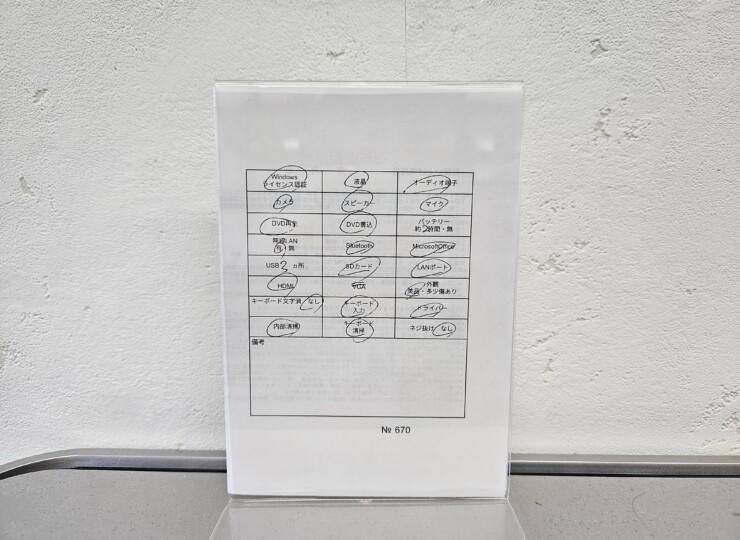 Windows
ライセンス認証
液晶
オーディオ端子
カメラ
スピーカー
マイク
DVD再生
DVD書込
バッテリー
約2時間・無
無線LAN
有・無
Bluetooth
MicrosoftOffice
USB 3 ヵ所
SDカード
LANポート
HDMI
VGA
外観
美品・多少傷あり
キーボード文字消 なし
キーボード
入力
ドライバー
内部清掃
キーボード
清掃
ネジ抜け なし
備考
№ 670